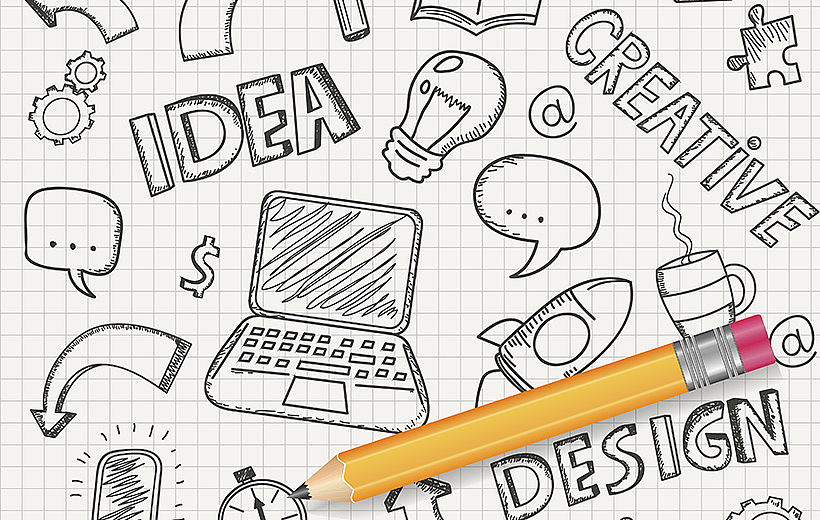 IDEA
@
CREATiVE
...
$
...
@
DESIGN